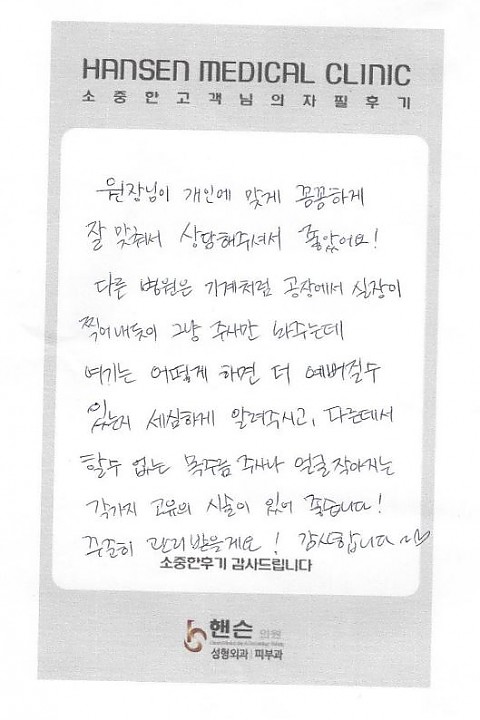 HANSEN MEDICAL CLINIC
소중한고객님의자필후기
원장님이 개인에 맞게 꼼꼼하게
잘 맞춰서 상담해주셔서 좋았어요!
다른 병원은 기계처럼 공장에서 실장이
찍어내듯이 그냥 주사만 놔주는데
여기는 어떻게 하면 더 예뻐질수
있는지 세심하게 알려주시고, 다른데서
할수 없는 목주름 주사나 얼굴작아지는
각가지 고유의 시술이 있어 좋습니다!
꾸준히 관리받을게요! 감사합니다~♡
소중한후기 감사드립니다
핸슨 의원
성형외과 피부과